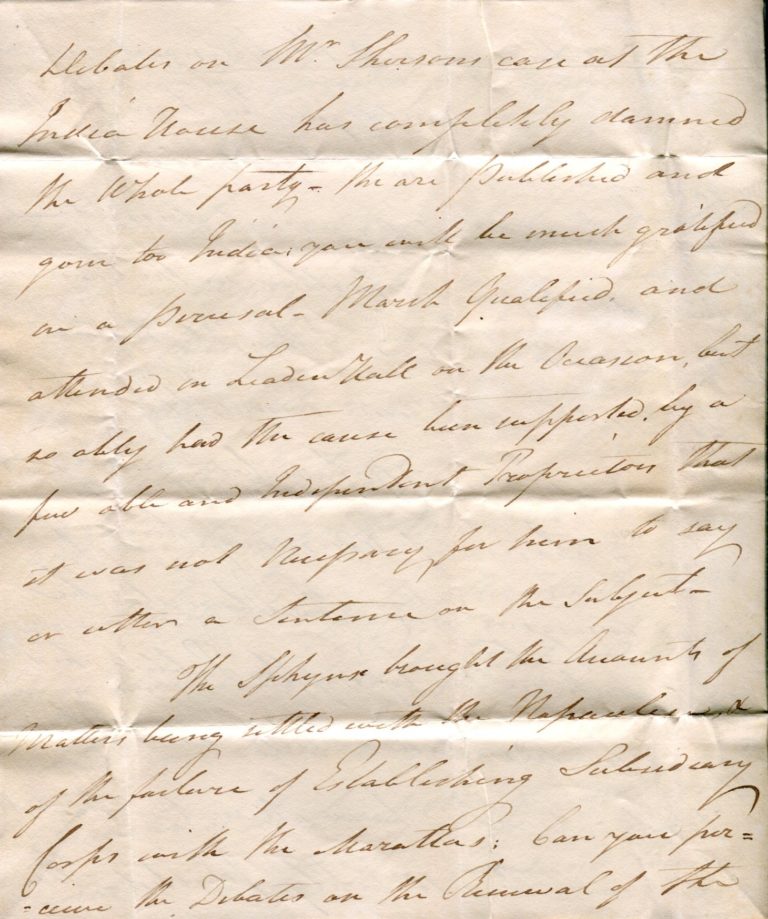 Debates on Mr. Shersons case at the
India House has completely damned
the Whole party - the are published and
gone too India, you will be much gratified
on a perusal - Marsh Qualified, and
attended in Leaden Hall on the Occasion, but
so ably had the cause been supported, by a
few able and Independent Proprietors that
it was not Necessary for him to say
or utter a Sentence on the Subject -
The Sphynx brought the Accounts of
Matters being settled with the Napaulese, &
of the failure of Establishing Subsidiary
Corps with the Marattas; Can you per=
=ceive the Debates on the Renewal of the